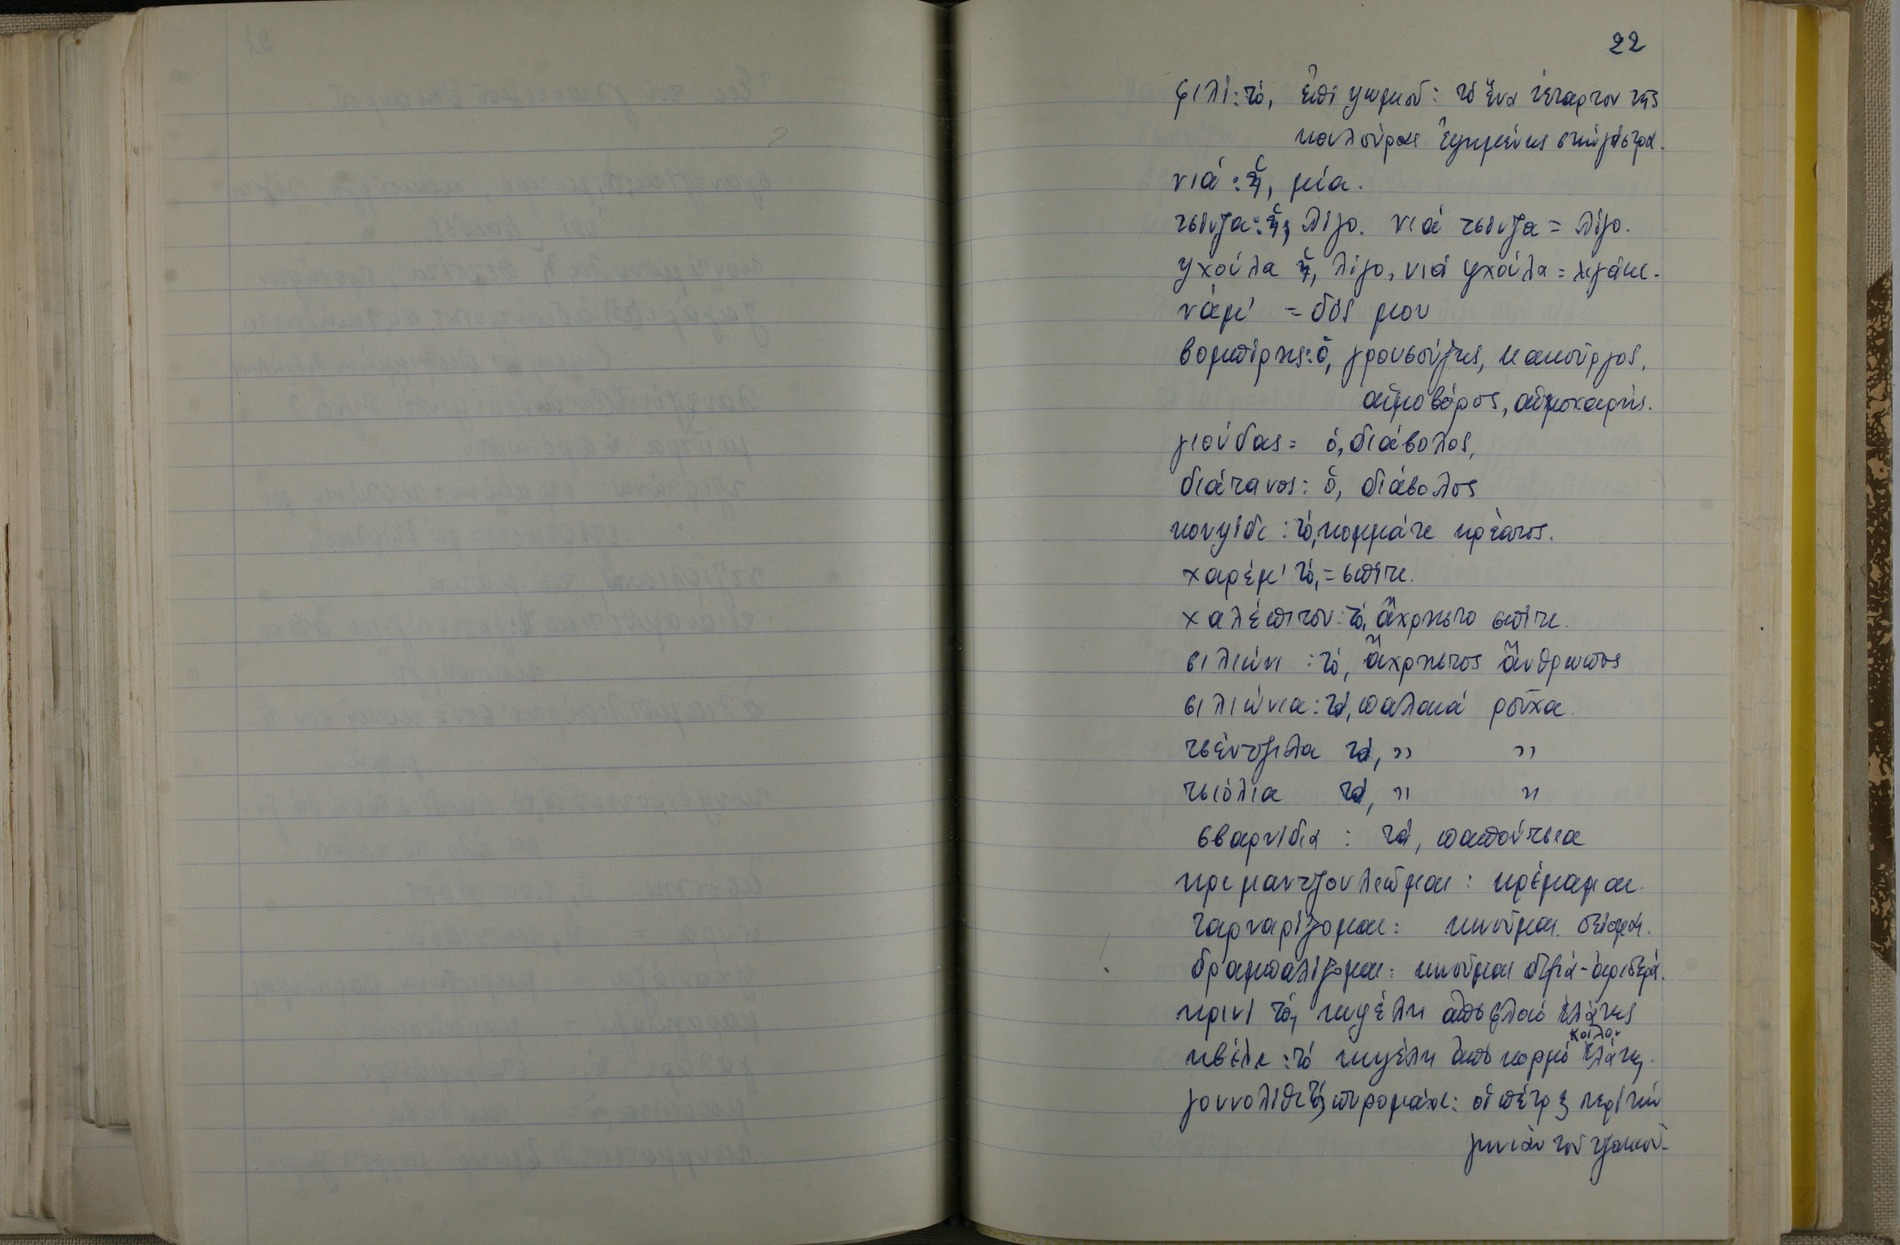 22
φιλί: τό, ἐπί ψωμιοῦ: τό ἕνα τέταρτον τῆς
κουλούρας ἑψημένης στήν γάστρα.
νιά: ἡ, μία.
τσίντζα: ἡ, λίγο. νιά τσίντζα = λίγο.
ψχούλα ἡ, λίγο, νιά ψχούλα = λιγάκι.
νάμ' = δός μου
βομπίρης: ὁ, γρουσούζης, κακοῦργος,
αἱμοβόρος, αἱμοχαρής.
γιούδας = ὁ, διάβολος,
διάτανος: ὁ, διάβολος
κοψίδι: τό, κομμάτι κρέατος.
χαρέμ' τό, = σπίτι.
χαλέπιτον: τό, ἄχρηστο σπίτι.
σιλιώνι: τό, ἄχρηστος ἄνθρωπος
σιλιώνια: τά, παλαιά ροῦχα.
τσέντζιλα τά, " "
τσιόλια τά, " "
σβαρνίδια: τά, παπούτσια
κριμαντζουλιῶμαι: κρέμαμαι.
ταρναρίζομαι: κινοῦμαι, σείομαι.
δραμπαλίζομαι: κινοῦμαι δεξιά-ἀριστερά.
κρινί τό, κυψέλη ἀπό φλοιό ἐλάτης
κβέλι: τό κυψέλη ἀπό κορμό κοῖλον ἐλάτης.
γουνολίθι τό, πυρομάχι: οἱ πέτρες περί τήν
γωνιάν τοῦ τζακιοῦ.